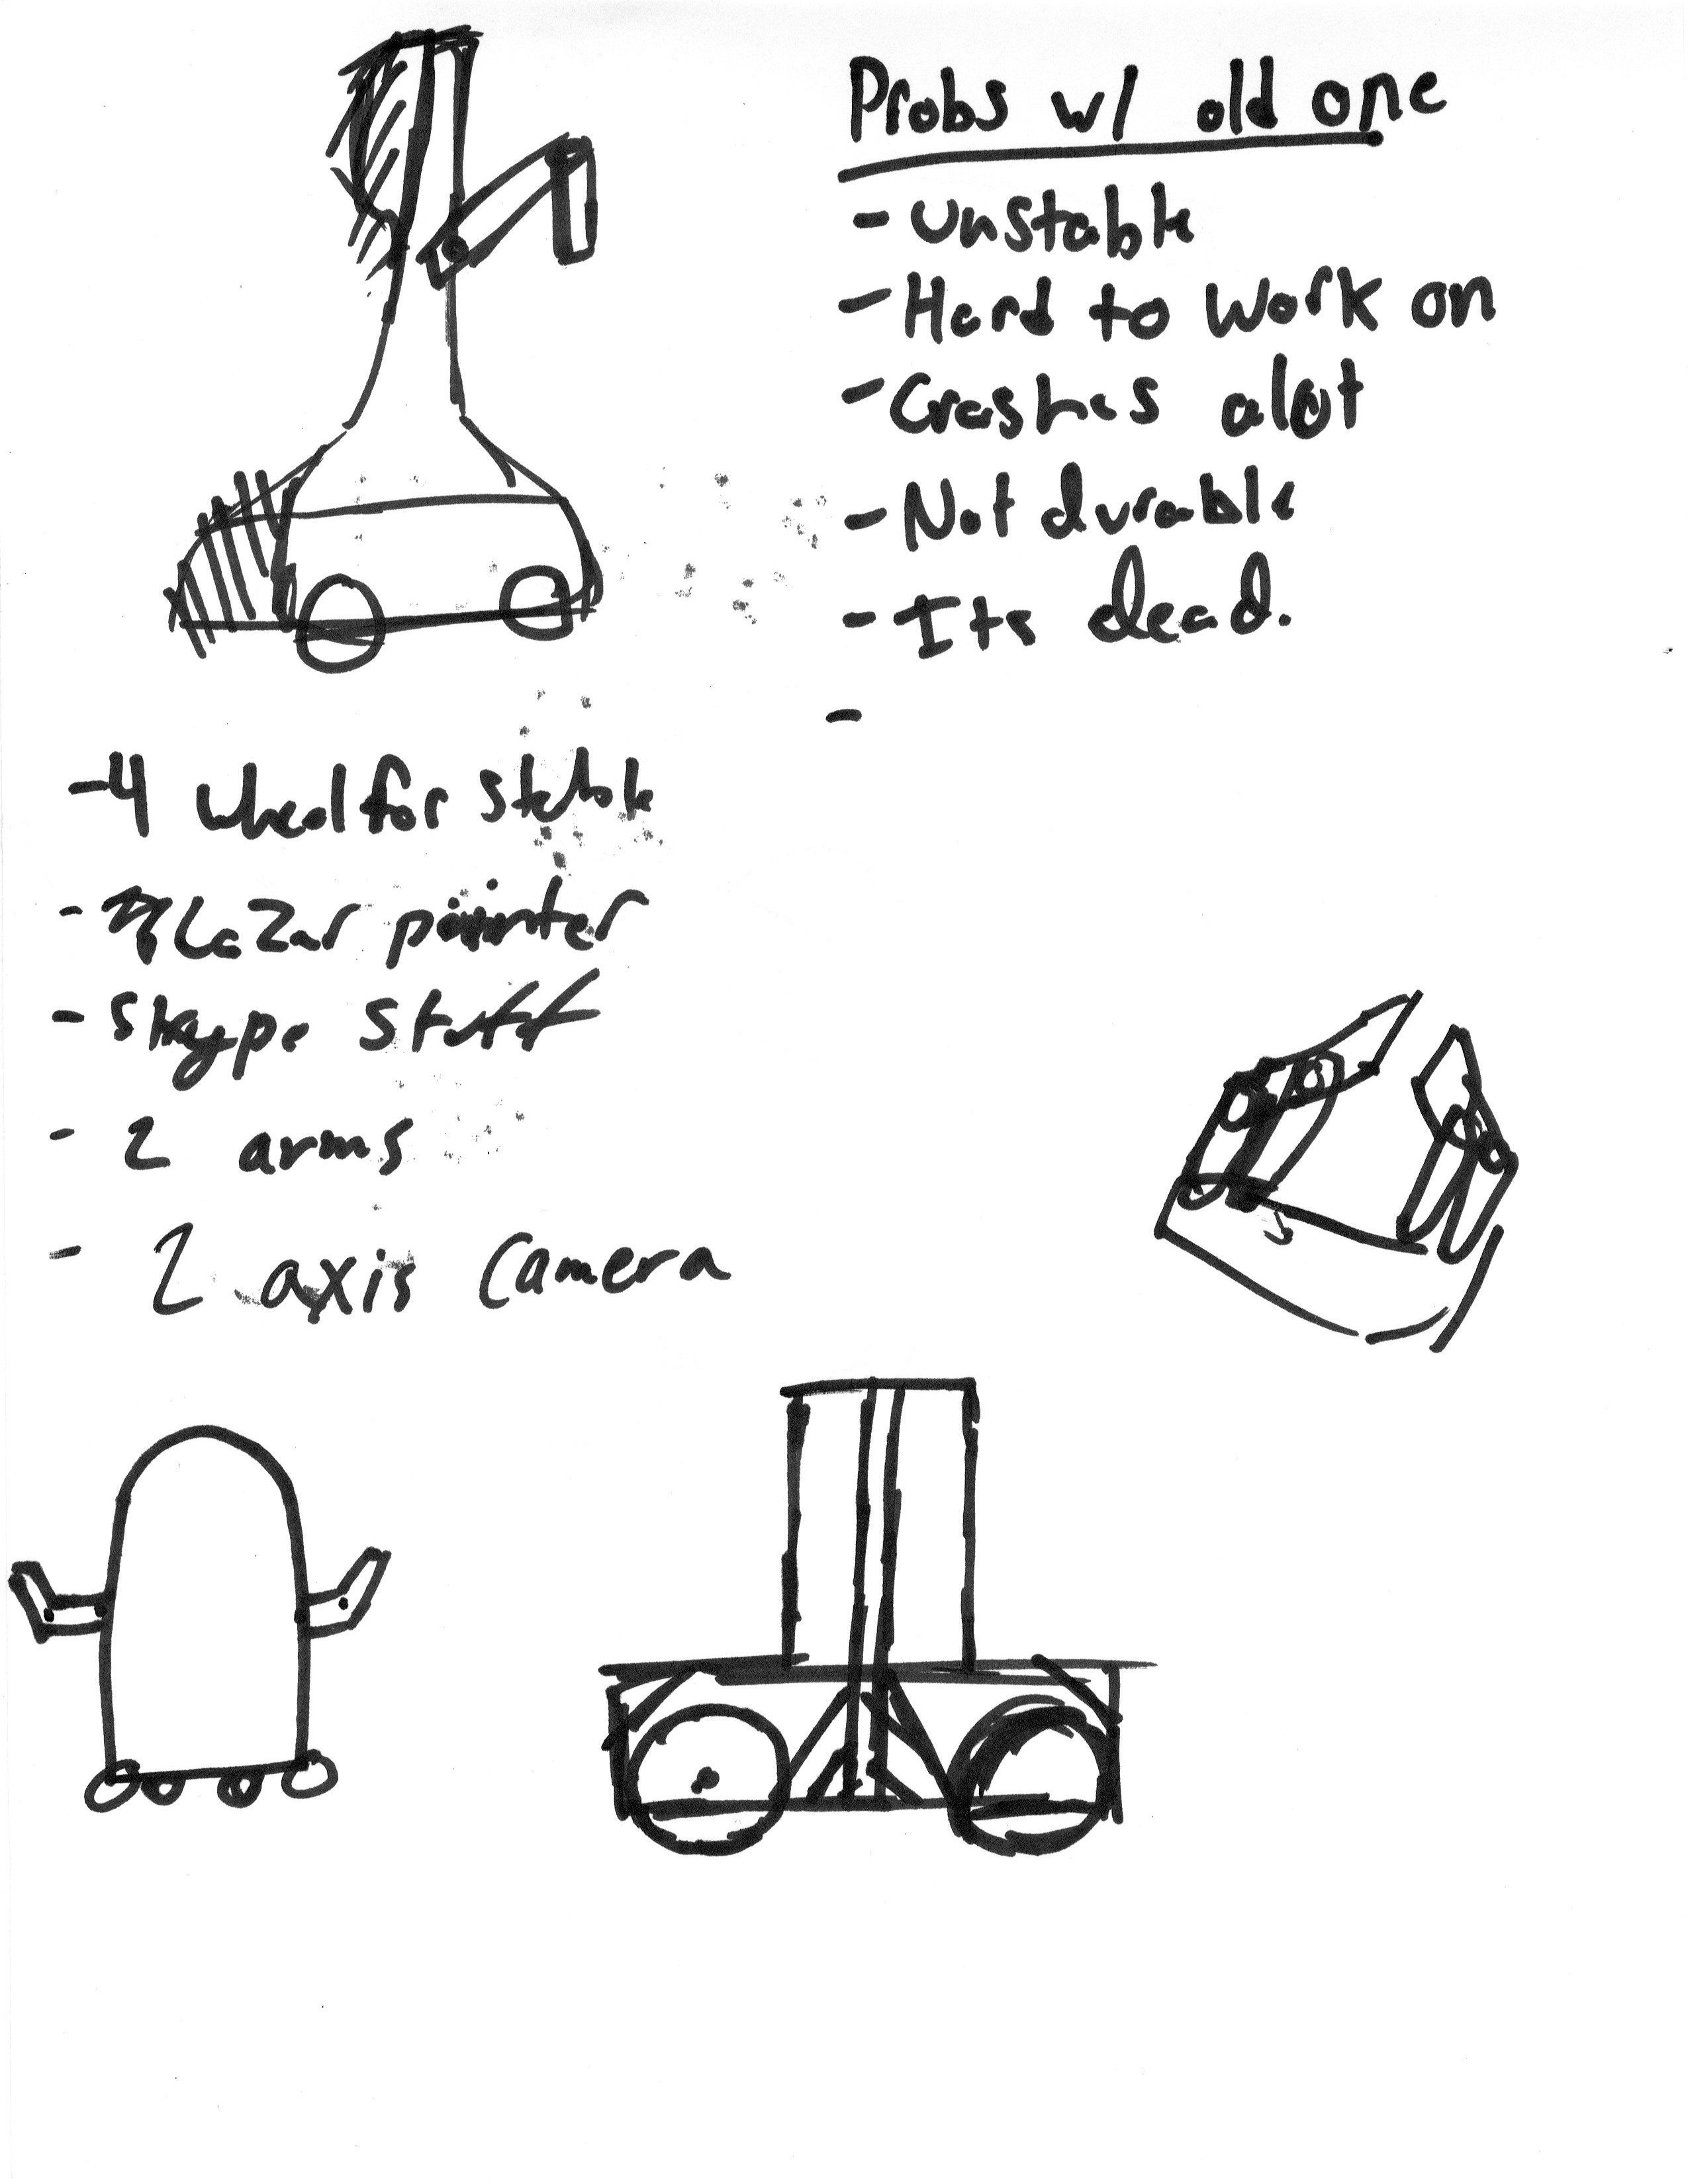 Probs w/ old one
- Unstable
- Hard to work on
- Crashes alot
- Not durable
- Its dead.
-
- 4 wheel for stable
- Lazar pointer
- Skype stuff
- 2 arms
- 2 axis camera